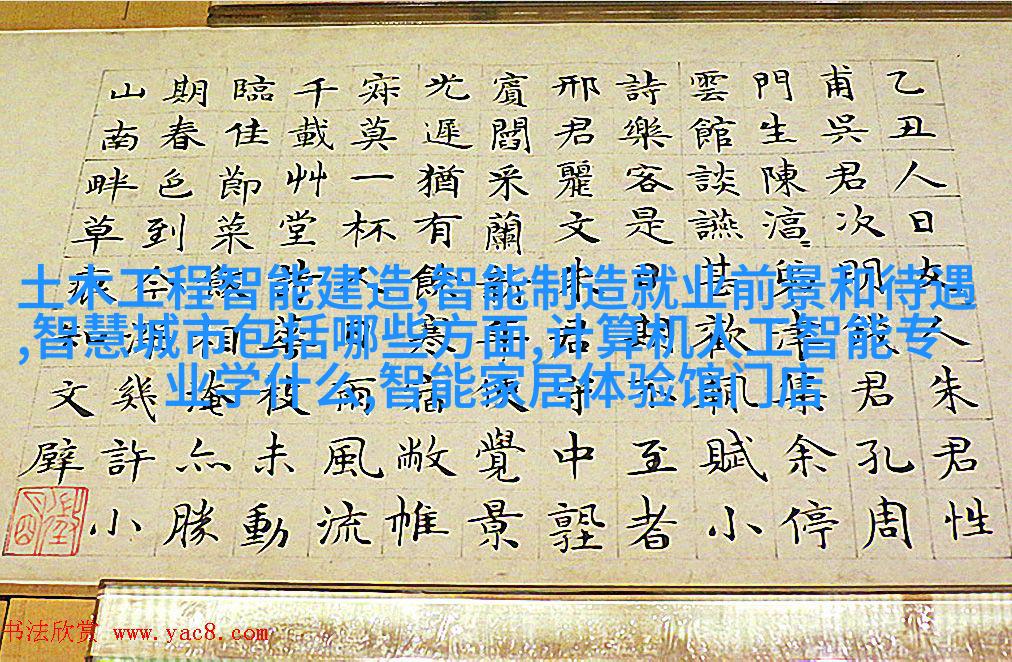 乙丑人日友人朱君性
甫吳君次明錢君孔周
門生陳津集余停
雲館談讌甚歡輒賦小
詩樂客是日期不至者
邢君麗文朱君中
賔閻采蘭覺景
光遲猶有餘寒宿敝帷
莫一杯雨風流
千載艸堂詩技未動
臨佳節菜飯勝
期春色到湖幾許小
山南畔草痕文壁
土木工程智能建造,智能制造就业前景和待遇
,智慧城市包括哪些方面,计算机人工智能专
业学什么,智能家居体验馆门店
书法欣赏 www.yac8.com